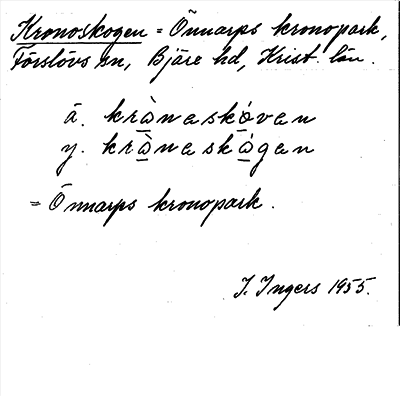 Kronoskogen = Önnarps kronopark,
Förslövs sn, Bjäre hd, Krist. län.
ä. kròneskóven
y. kròneskógen
= Önnarps kronopark.
I. Ingers 1955.